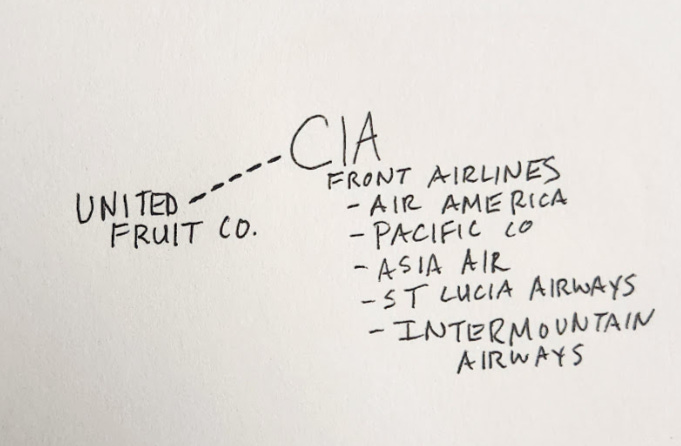 CIA
FRONT AIRLINES
- AIR AMERICA
- PACIFIC CO
- ASIA AIR
- ST LUCIA AIRWAYS
- INTERMOUNTAIN
AIRWAYS
UNITED
FRUIT CO.